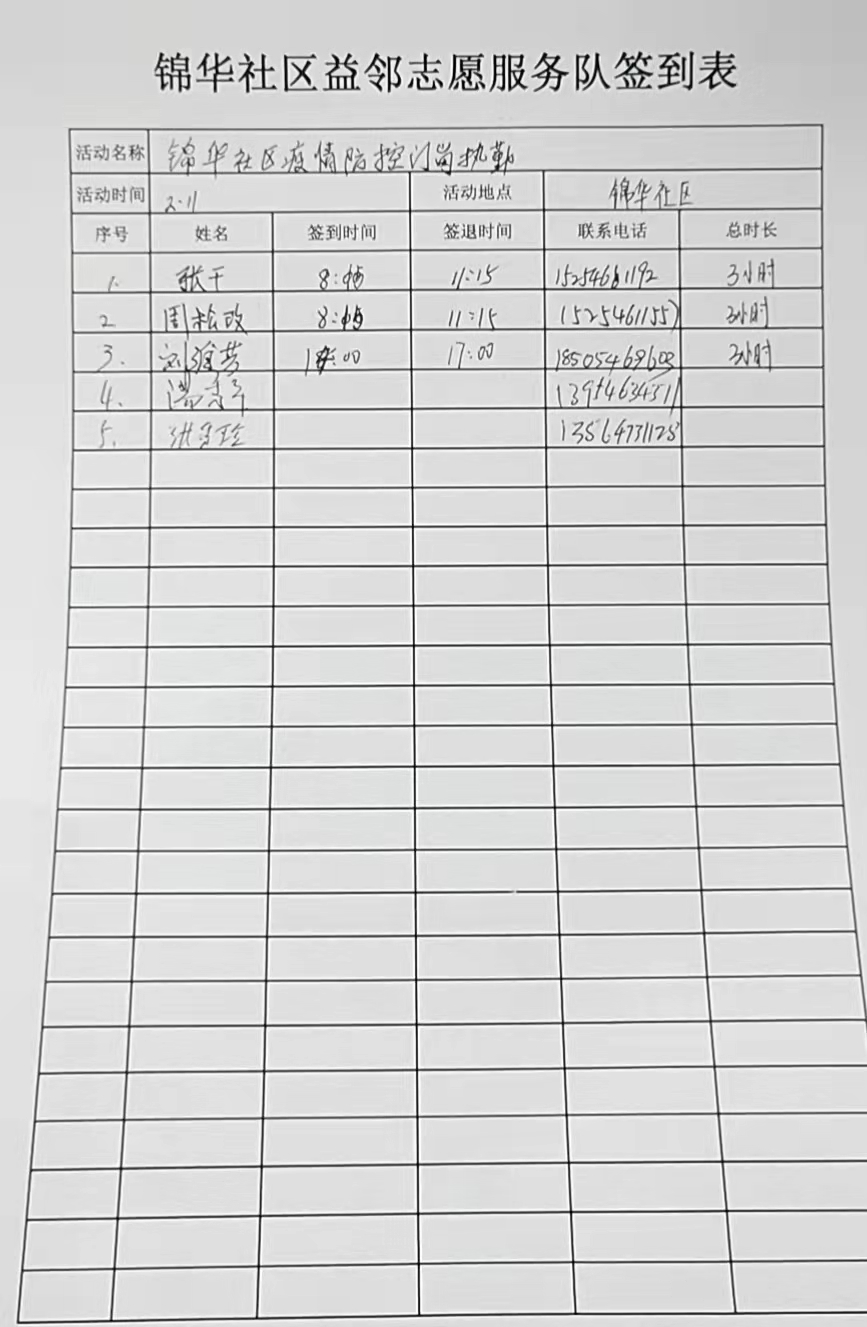 锦华社区益邻志愿服务队签到表
活动名称 锦华社区疫情防控门岗执勤
活动时间 2.11 活动地点 锦华社区
序号 姓名 签到时间 签退时间 联系电话 总时长
1. 张干 8:15 11:15 15254681192 3小时
2 周松改 8:15 11:15 15254611557 3小时
3. 刘 14:00 17:00 18505469603 3小时
4.
5. 13564731125